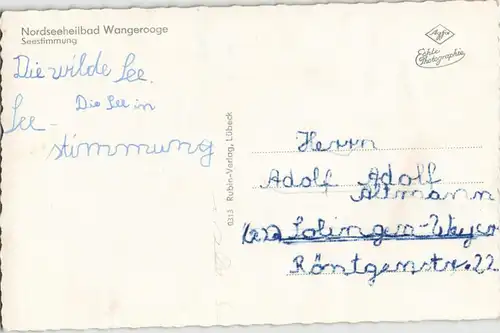 Nordseeheilbad Wangerooge
Seestimmung
Agfa
Echte
Photographie
Die wilde See.
Die See in
See-
stimmung
0313 Rubin-Verlag, Lübeck
Herrn
Adolf Adolf
Altmann
Solingen-Weyer
Röntgenstr. 22